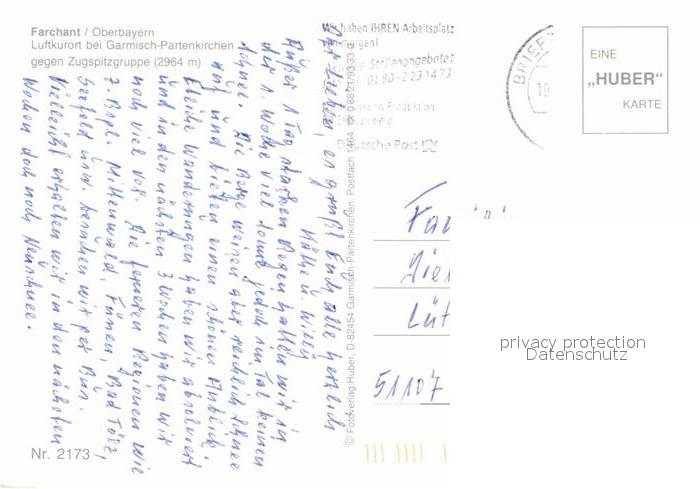 Farchant / Oberbayern
Luftkurort bei Garmisch-Partenkirchen
gegen Zugspitzgruppe (2964 m)
Wir haben IHREN Arbeitsplatz
Stellenangebote
0180-2 23 14 73
Deutsche Post
BRIEF
EINE
„HUBER"
KARTE
Ihr Lieben, es grüßt Euch alle herzlich
Käthe u. Willi
Außer 1 Tag starken Regen hatten wir in
der 1. Woche viel Sonne jedoch im Tal keinen
Schnee. Die Berge weisen aber reichlich Schnee
auf und bieten einen schönen Anblick.
Etliche Wanderungen haben wir absolviert
und in den nächsten 3 Wochen haben wir
noch viel vor. Die ferneren Regionen wie
z. Bspl. Mittenwald, Füssen, Bad Tölz,
Seefeld usw. werden wir per Bus.
Vielleicht erhalten wir in den nächsten
Wochen doch noch Neuschnee.
© Fotoverlag Huber, D-82454 Garmisch-Partenkirchen, Postfach
Fa
Die
Lüt
51107
privacy protection
Datenschutz
Nr. 2173